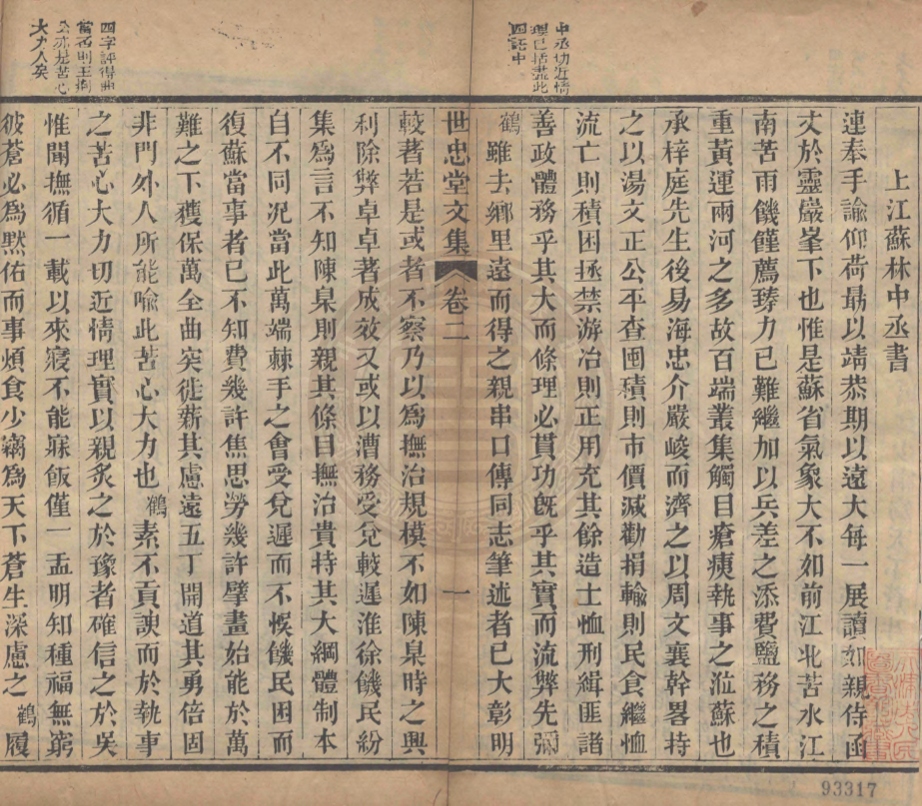 中丞切近情
理已括盡此
四語中
上江蘇林中丞書
連奉手諭仰荷勗以靖恭期以遠大每一展讀如親侍函
丈於靈巖峯下也惟是蘇省氣象大不如前江北苦水江
南苦雨饑饉薦臻力已難繼加以兵差之添費鹽務之積
重黃運兩河之多故百端叢集觸目瘡痍執事之涖蘇也
承梓庭先生後易海忠介嚴峻而濟之以周文襄幹畧持
之以湯文正公平查囤積則市價減勸捐輸則民食繼恤
流亡則積困拯禁游冶則正用充其餘造士恤刑緝匪諸
善政體務乎其大而條理必貫功旣乎其實而流弊先彌
鶴雖去鄉里遠而得之親串口傳同志筆述者已大彰明
世忠堂文集
卷二
一
四字評得典
當否則王荆
公亦是苦心
大力人矣
較著若是或者不察乃以爲撫治規模不如陳臬時之興
利除弊卓卓著成效又或以漕務受兌較遲淮徐饑民紛
集爲言不知陳臬則親其條目撫治貴持其大綱體制本
自不同况當此萬端棘手之會受兌遲而不悞饑民困而
復蘇當事者已不知費幾許焦思勞幾許擘畫始能於萬
難之下獲保萬全曲突徙薪其慮遠五丁開道其勇倍固
非門外人所能喻此苦心大力也鶴素不貢諛而於執事
之苦心大力切近情理實以親炙之於豫者確信之於吳
惟聞撫循一載以來寢不能寐飯僅一盂明知種福無窮
彼蒼必爲默佑而事煩食少竊爲天下蒼生深慮之鶴履
93317